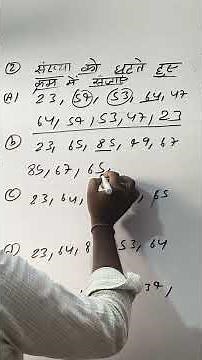 (2) संख्या को घटते हुए
क्रम में सजाएँ
(A) 23, 57, 53, 64, 47
64, 57, 53, 47, 23
(b) 23, 65, 85, 49, 67
85, 67, 65,
(C) 23, 64, 65
23, 64, 53, 64
34,